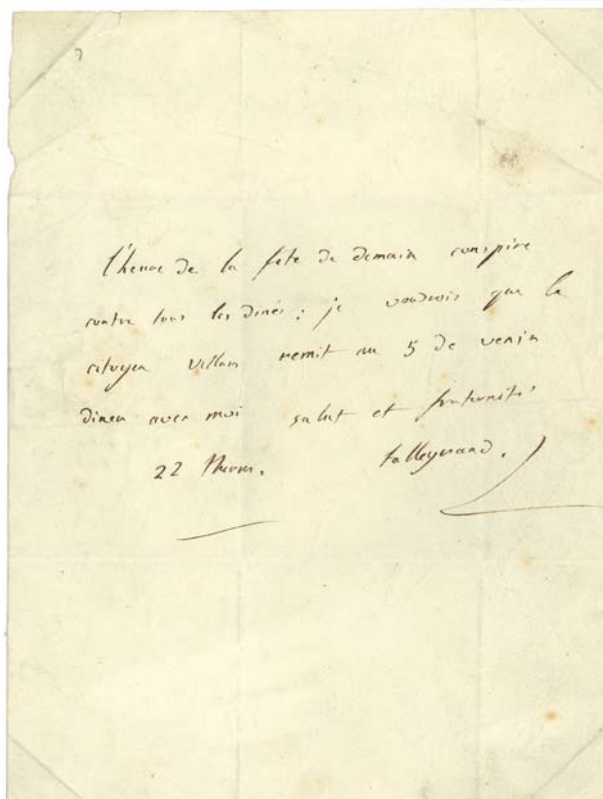 l'heure de la fete de demain conspire
contre tous les dinés ; je voudrois que le
citoyen villars remit au 5 de venir
diner avec moi salut et fraternité
22 Therm. talleyrand.